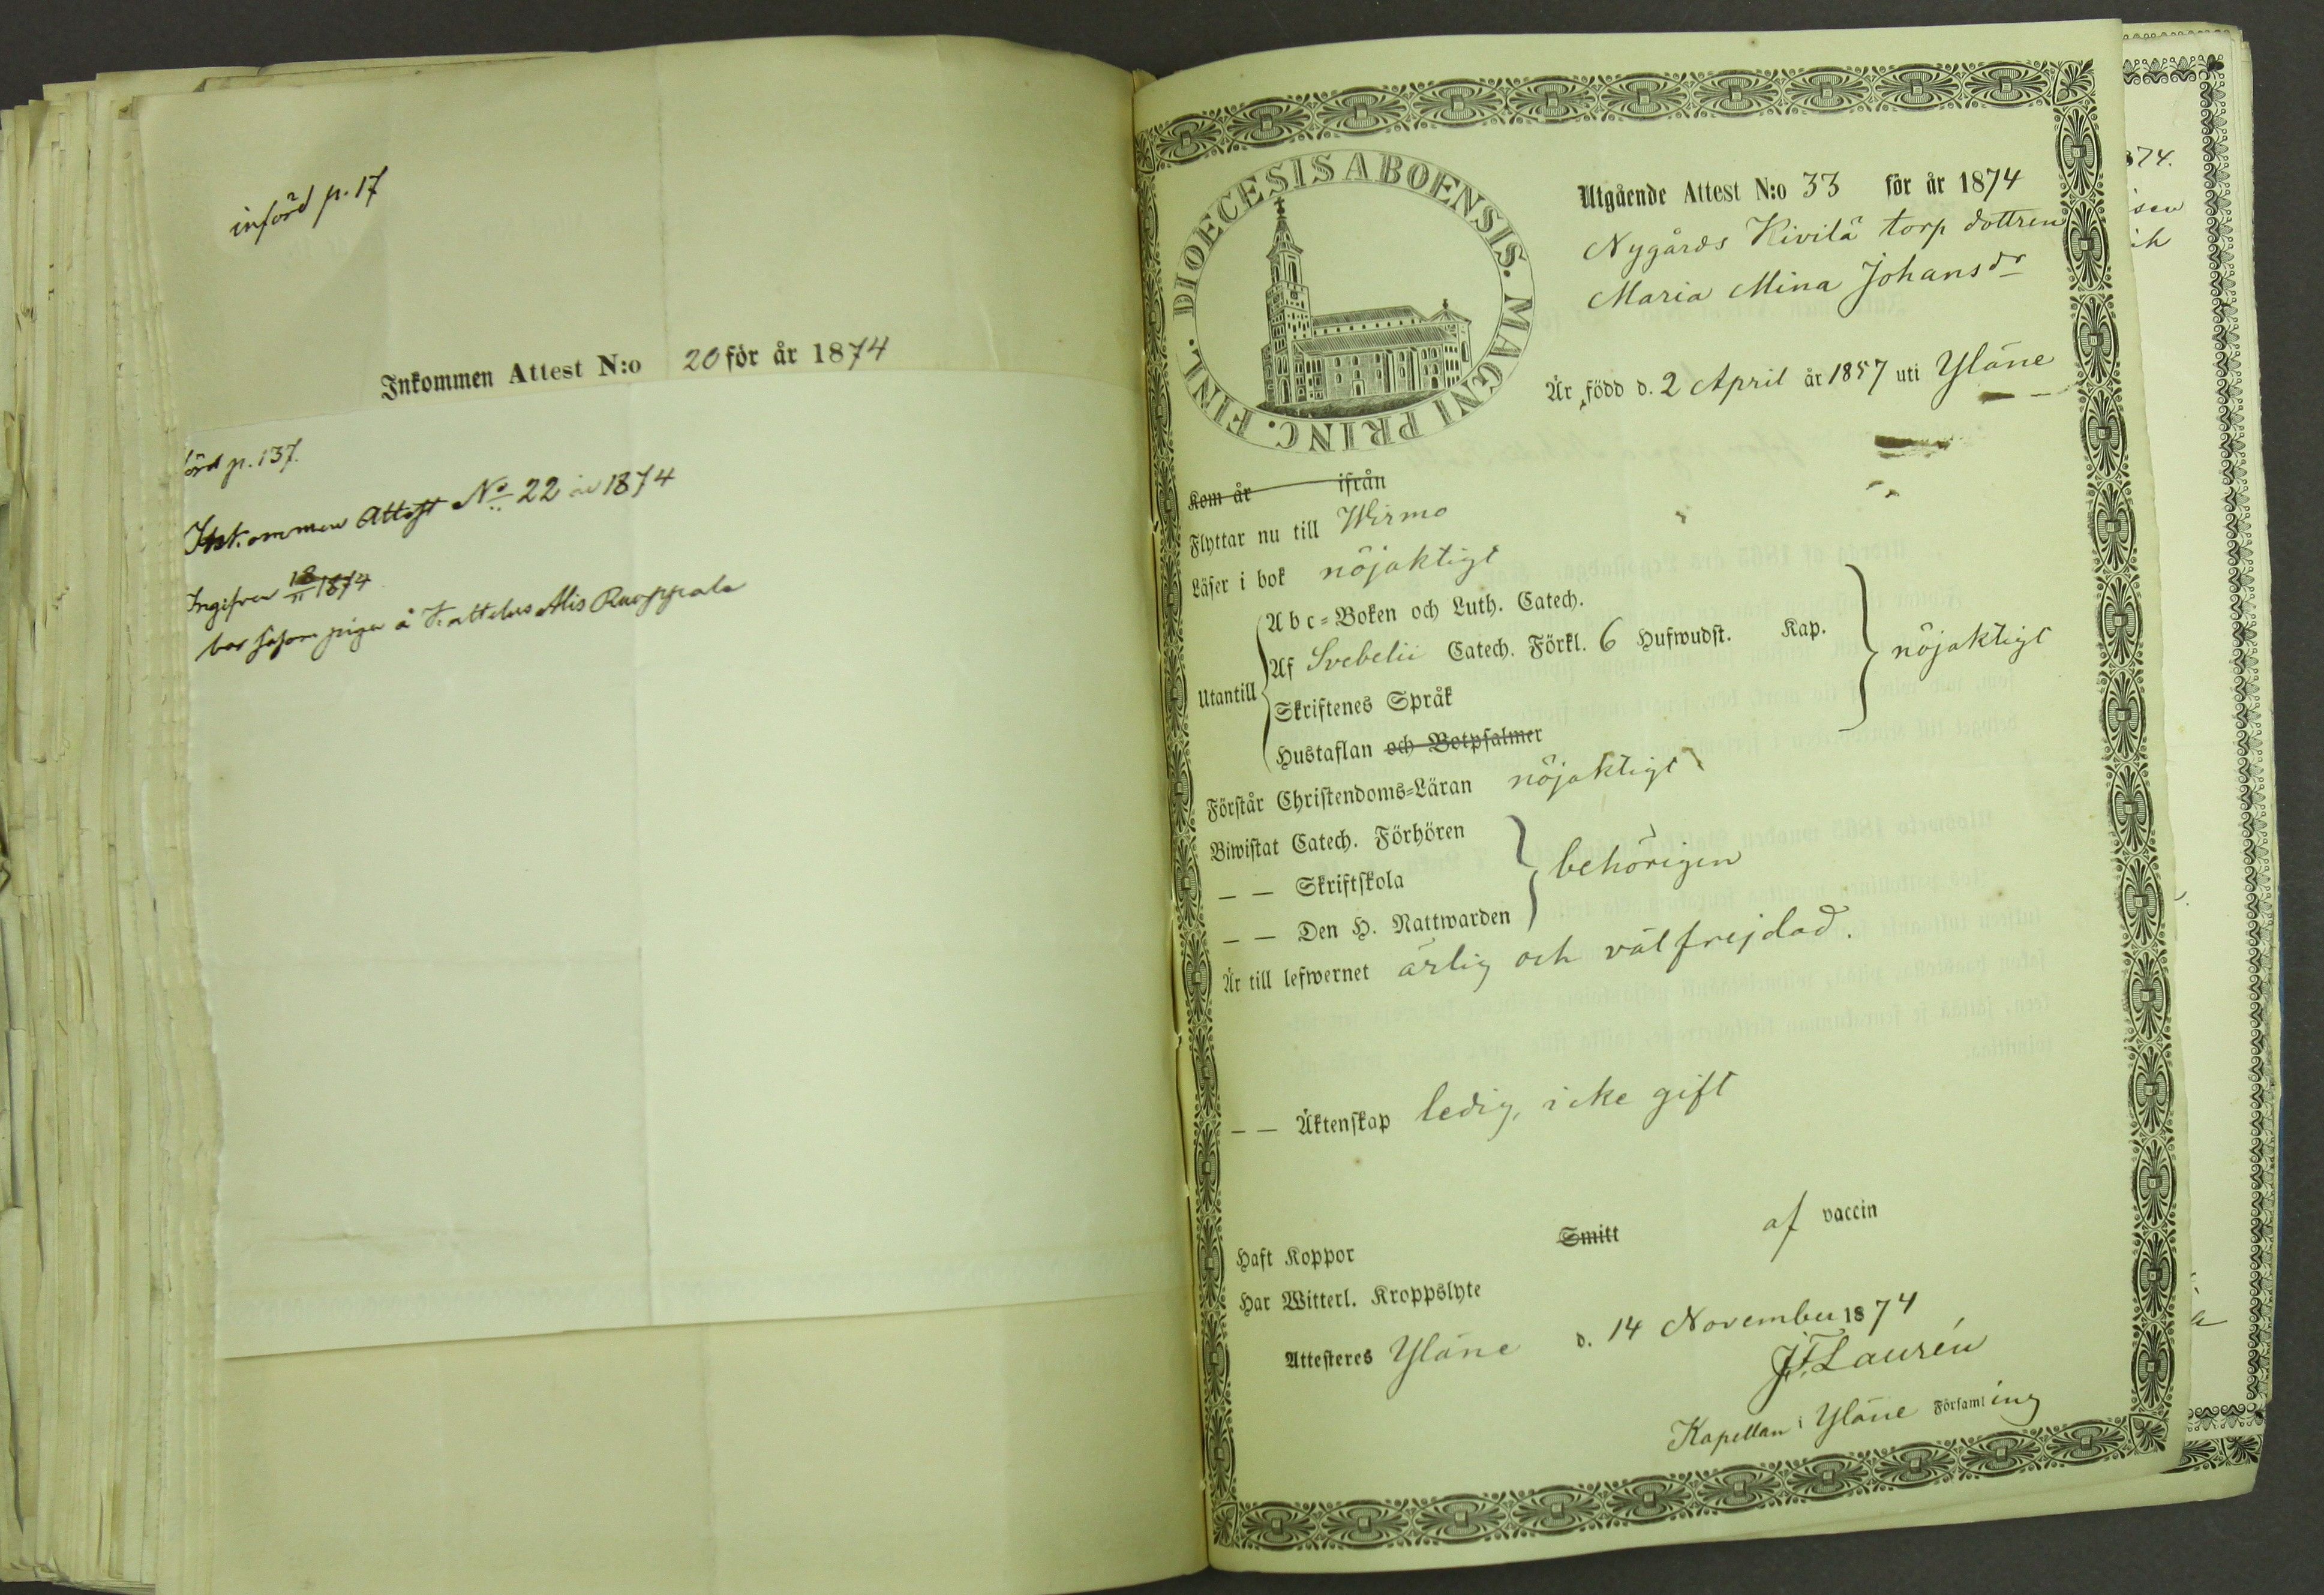 införd p. 17
Inkommen Attest N:o 20 för år 1874
förd p. 137.
Inkommen Attest No 22 år 1874
Ingifven 18/11 1874
bor såsom piga å Kattelus Alis Ruoppala
DIOECESIS ABOENSIS. MAGNI PRINC. FINL.
Utgående Attest N:o 33 för år 1874
Nygårds Kivilä torp dottren
Maria Mina Johansdr
Är född d. 2 April år 1857 uti Yläne
Kom år ifrån
Flyttar nu till Wirmo
Läser i bok nöjaktigt
Utantill
Abc-Boken och Luth. Catech.
Af Svebelii Catech. Förkl. 6 Hufwudst. Kap.
nöjaktigt
Skriftenes Språk
Hustaflan och Botpsalmer
Förstår Christendoms-Läran nöjaktigt
Biwistat Catech. Förhören
— — Skriftskola
behörigen
— — Den H. Nattwarden
Är till lefwernet ärlig och välfrejdad.
— — Äktenskap ledig, icke gift
Haft Koppor Smitt af vaccin
Har Witterl. Kroppslyte
Attesteres Yläne d. 14 November 1874
J.F. Laurén
Kapellan i Yläne Församling